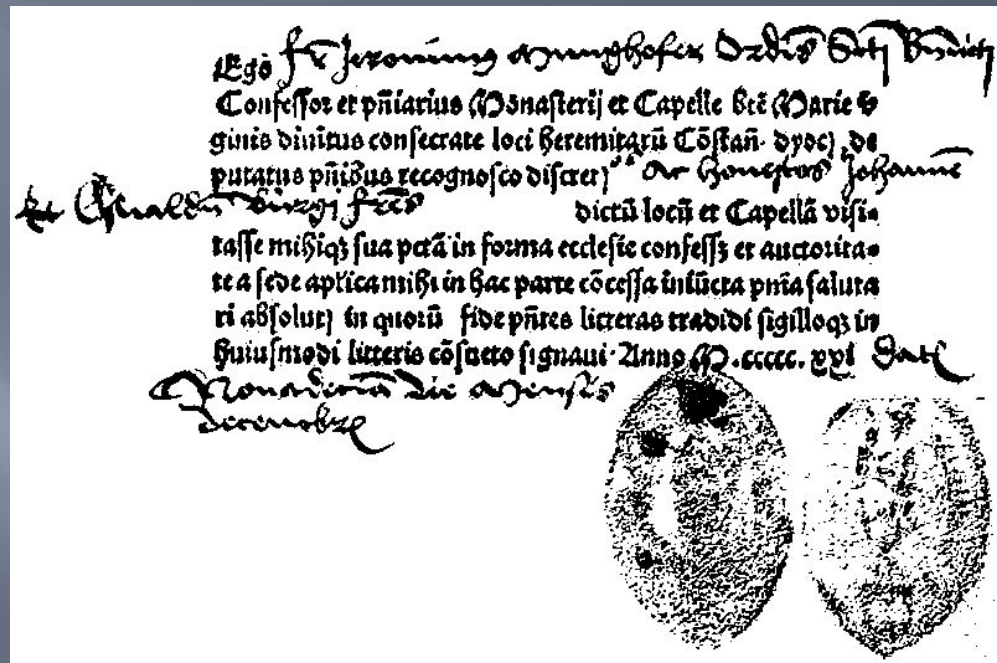 Egō fr̄ Jeronimus Munghofer Ordīs Scti Bn̄dicti
Confessor et pn̄iarius Monasterij et Capelle btē Marie v̾
ginis diuīitus consecrate loci heremitarū Cōstan̄· dyoc̄ȝ, de
putatus pn̄ibus recognosco discretȝ ac honestos Johannē
Et Oswaldū fr̄es dictū locū et Capellā visi-
tasse mihiqȝ sua pctā in forma ecclesie confessȝ et auctorita-
te a sede aplica mihi in hac parte cōcessa iniūcta pnīa saluta
ri absolutȝ in quorū fidē pn̄tes litteras tradidi sigilloqȝ in
huiusmodi litteris cōsueto signaui· Anno M.ccccc. xxi Datȝ
Nonadecima Die Mensis
decembrȝ